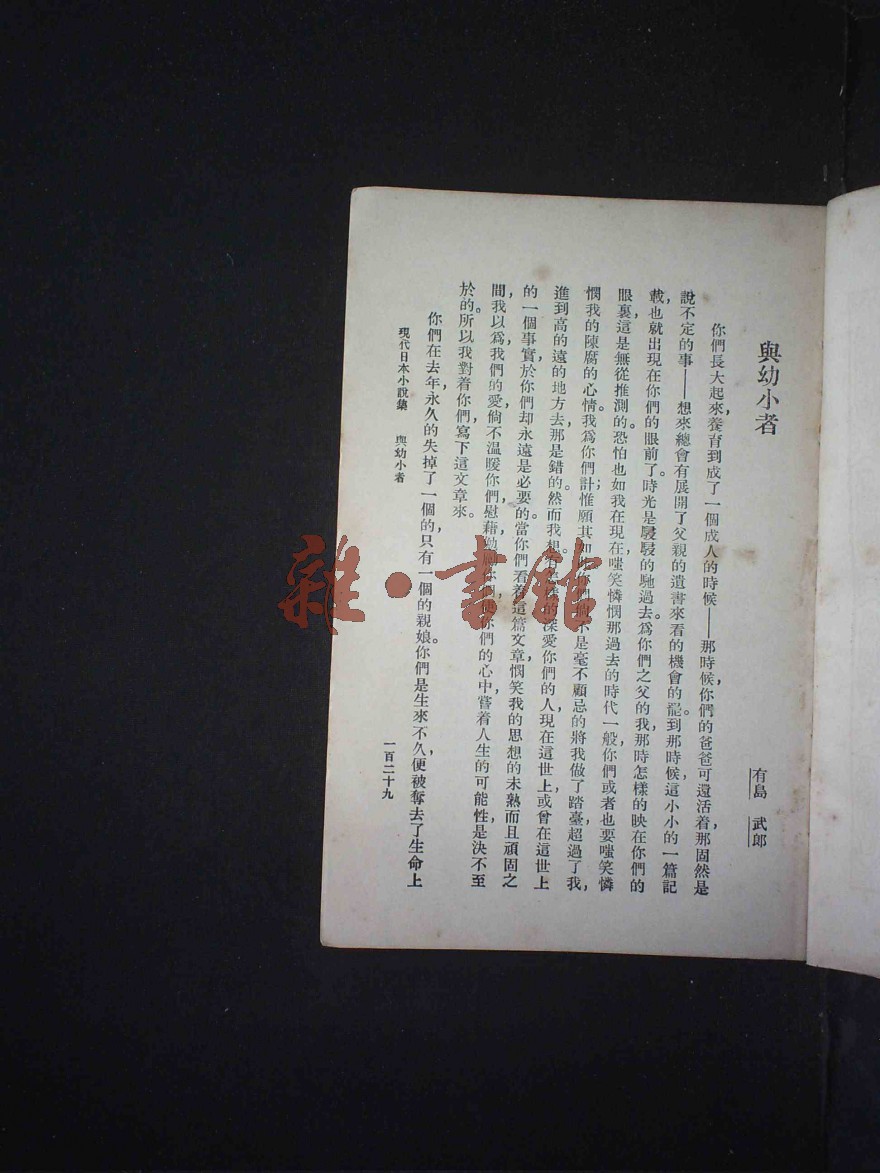 與幼小者
有島 武郎
你們長大起來,養育到成了一個成人的時候——那時候,你們的爸爸可還活着,那固然是
說不定的事——想來總會有展開了父親的遺書來看的機會的罷。到那時候,這小小的一篇記
載,也就出現在你們的眼前了。時光是駸駸的馳過去。爲你們之父的我,那時怎樣的映在你們的
眼裏,這是無從推測的。恐怕也如我在現在,嗤笑憐憫那過去的時代一般,你們或者也要嗤笑憐
憫我的陳腐的心情。我爲你們計,惟願其如此。你們倘不是毫不顧忌的將我做了踏臺,超過了我,
進到高的遠的地方去,那是錯的。然而我想,有怎樣的深愛你們的人,現在這世上,或曾在這世上
的一個事實,於你們却永遠是必要的。當你們看着這篇文章,憫笑我的思想的未熟而且頑固之
間,我以爲,我們的愛,倘不溫暖你們,慰藉,勉勵你們,使你們的心中,嘗着人生的可能性,是決不至
於的。所以我對着你們,寫下這文章來。
你們在去年,永久的失掉了一個的,只有一個的親娘。你們是生來不久,便被奪去了生命上
現代日本小說集 與幼小者
一百二十九
雜·書館